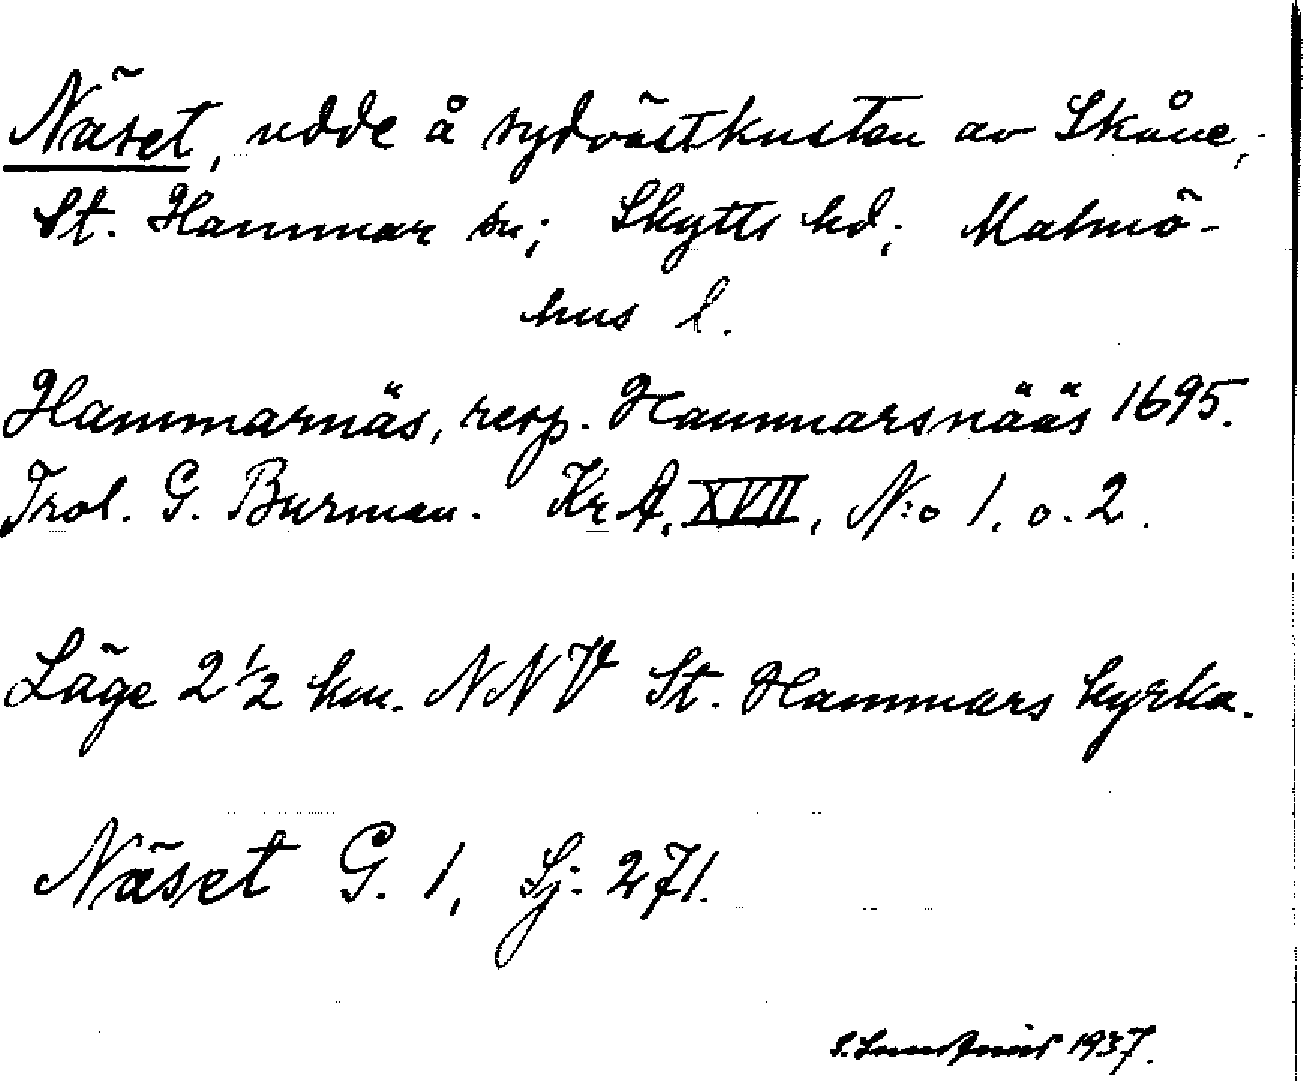 Näset, udde å sydvästkusten av Skåne;
St. Hammar sn; Skytts hd; Malmö-
hus l.
Hammarnäs, resp. Hammarsnääs 1695.
Trol. G. Burman. Kr A, XVII, N:o 1. o. 2.
Läge 2 1/2 km. NNV St. Hammars kyrka.
Näset G. 1, Sj: 271.
1937.